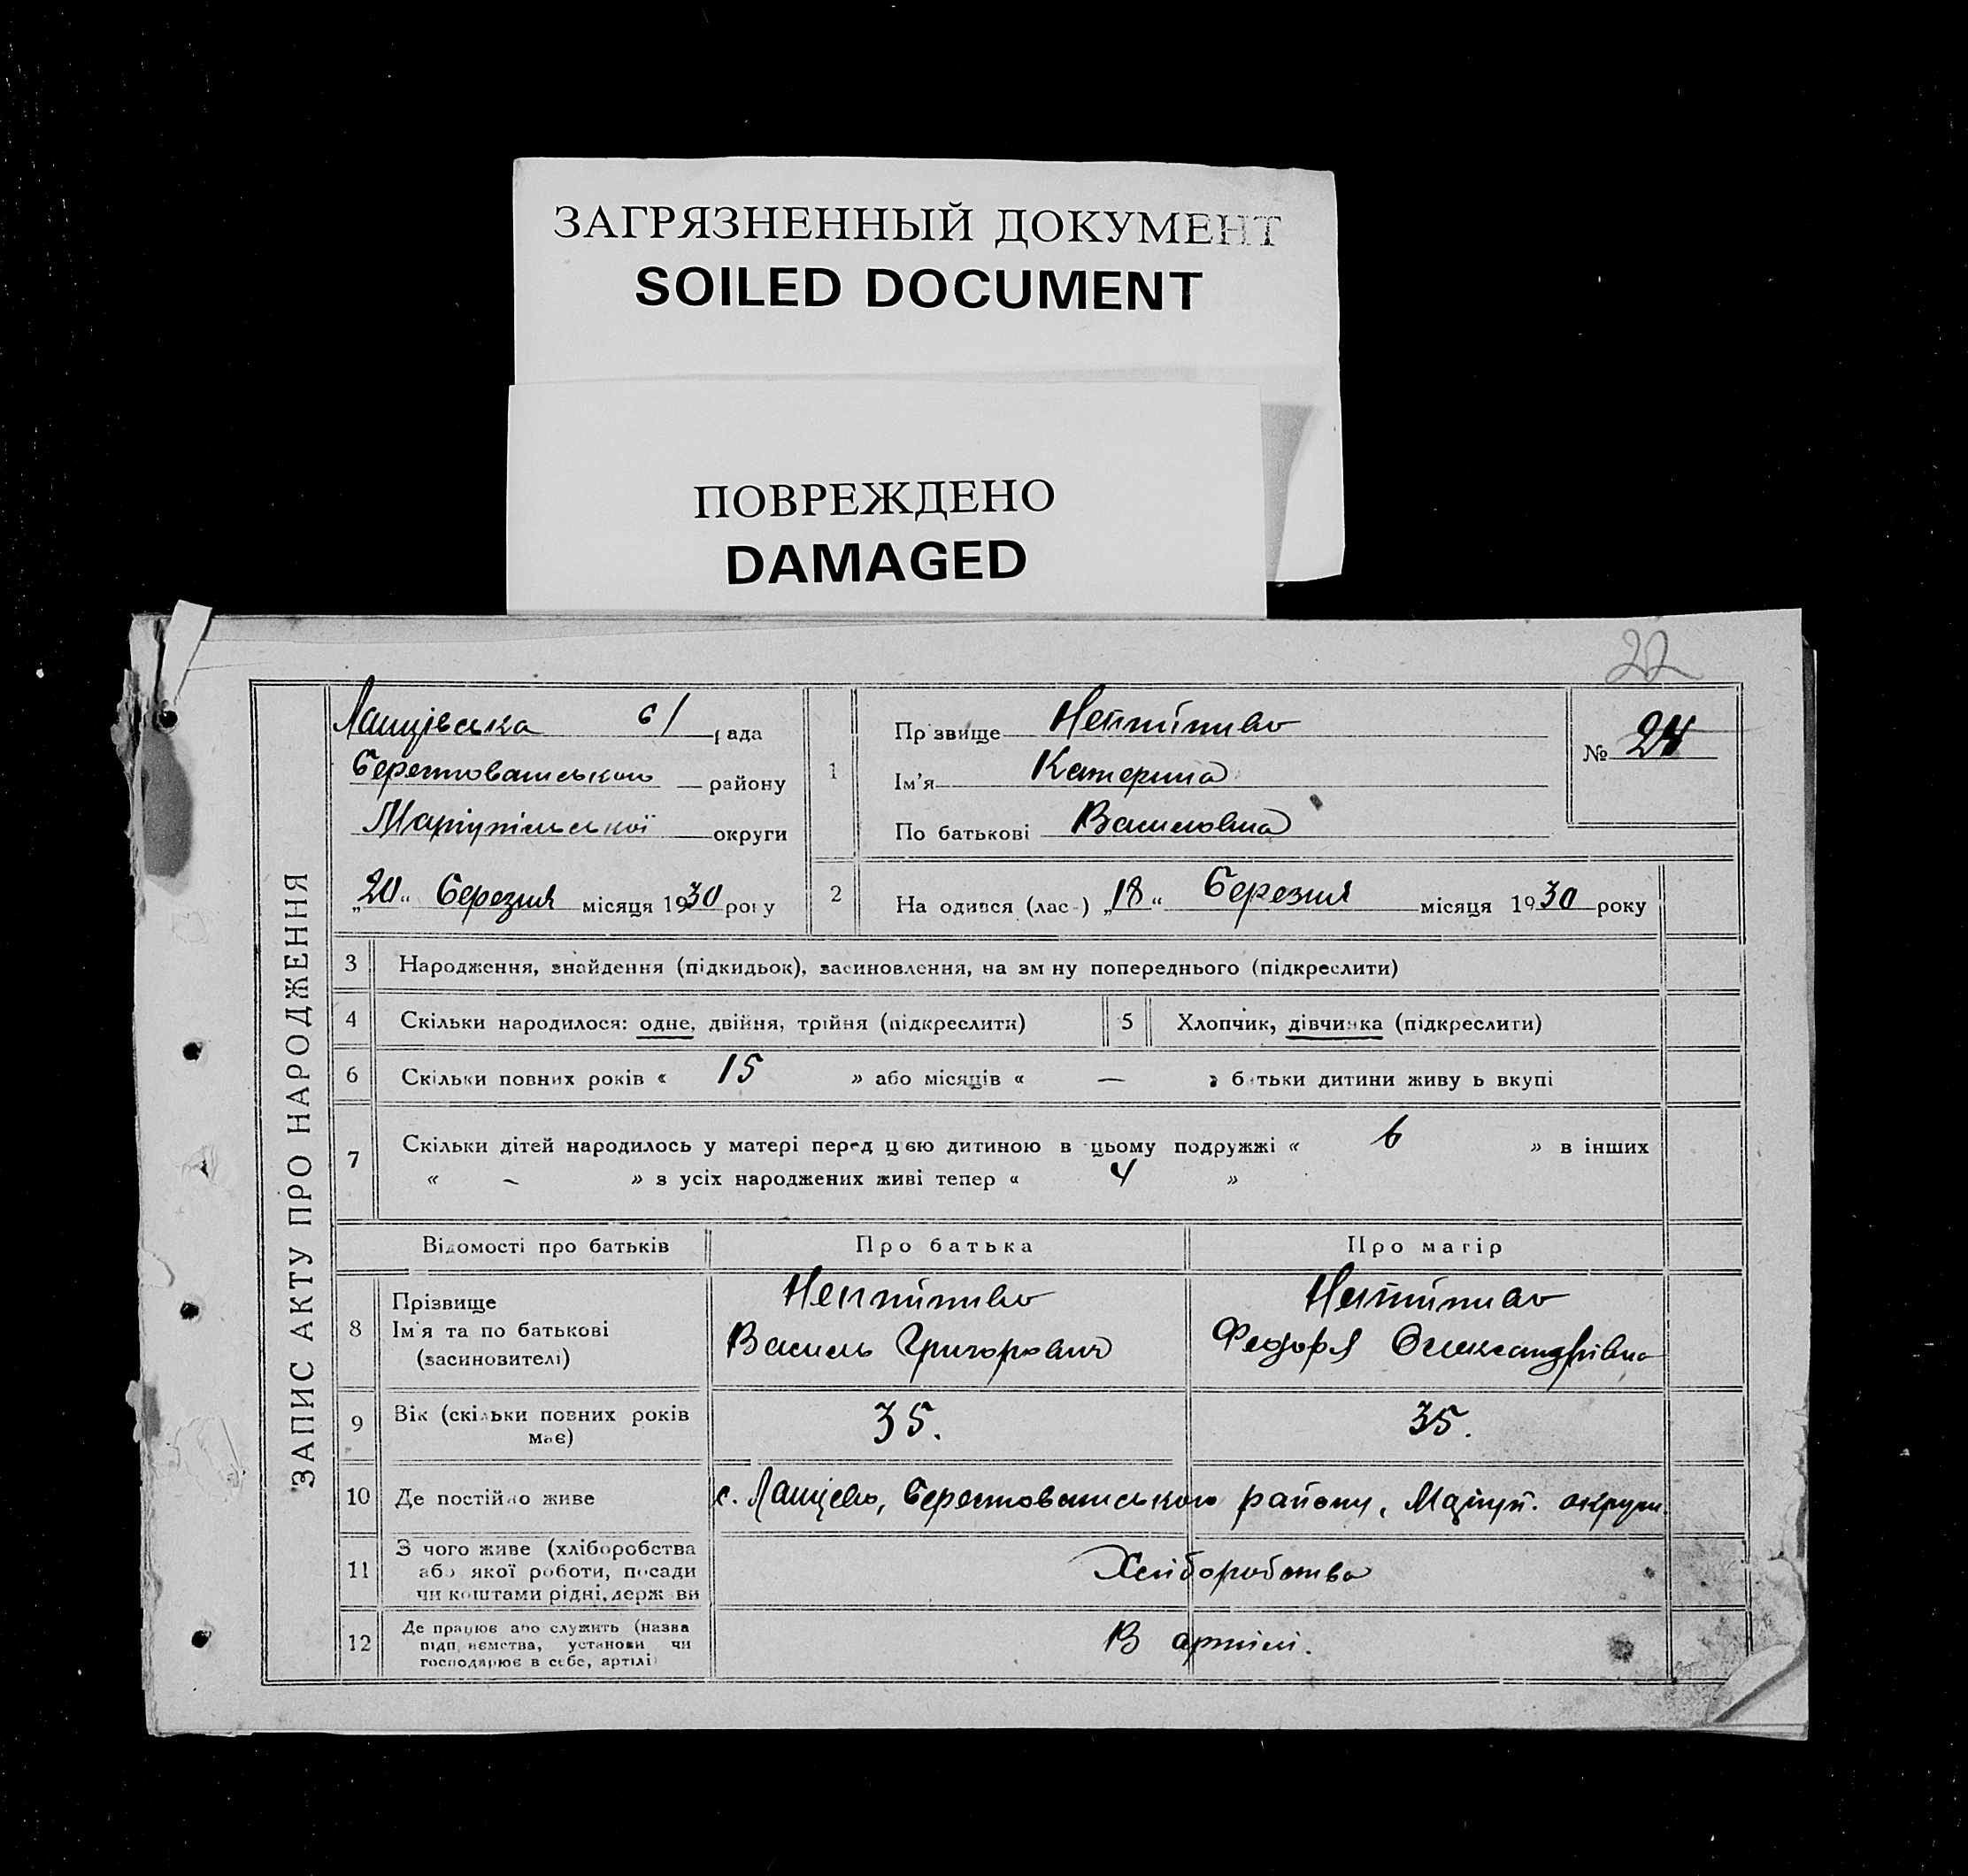 ЗАГРЯЗНЕННЫЙ ДОКУМЕНТ
SOILED DOCUMENT
ПОВРЕЖДЕНО
DAMAGED
22
ЗАПИС АКТУ ПРО НАРОДЖЕННЯ
с/ рада
Берестоватського району
Маріупільської округи
„20“ Березня місяця 1930 року
1
Прізвище Непийпиво
Ім’я Катерина
По батькові Василовна
№ 24
2 Народився (лась) „18“ Березня місяця 1930 року
3 Народження, знайдення (підкидьок), засиновлення, на зміну попереднього (підкреслити)
4 Скільки народилося: одне, двійня, трійня (підкреслити)
5 Хлопчик, дівчинка (підкреслити)
6 Скільки повних років « 15 » або місяців « — » батьки дитини живуть вкупі
7 Скільки дітей народилось у матері перед цією дитиною в цьому подружжі « 6 » в інших
« – » з усіх народжених живі тепер « 4 »
Відомості про батьків Про батька Про матір
8 Прізвище Ім’я та по батькові (засиновителі)
Непийпиво Василь Григорович
Непийпиво Федора Олександрівна
9 Вік (скільки повних років має) 35. 35.
10 Де постійно живе с. Лащево, Берестоватського району, Маріуп. округи
11 З чого живе (хліборобства
або якої роботи, посади
чи коштами рідні, держави
Хліборобство
12 Де працює або служить (назва
підприємства, установи чи
господарює в себе, артілі)
В артілі.